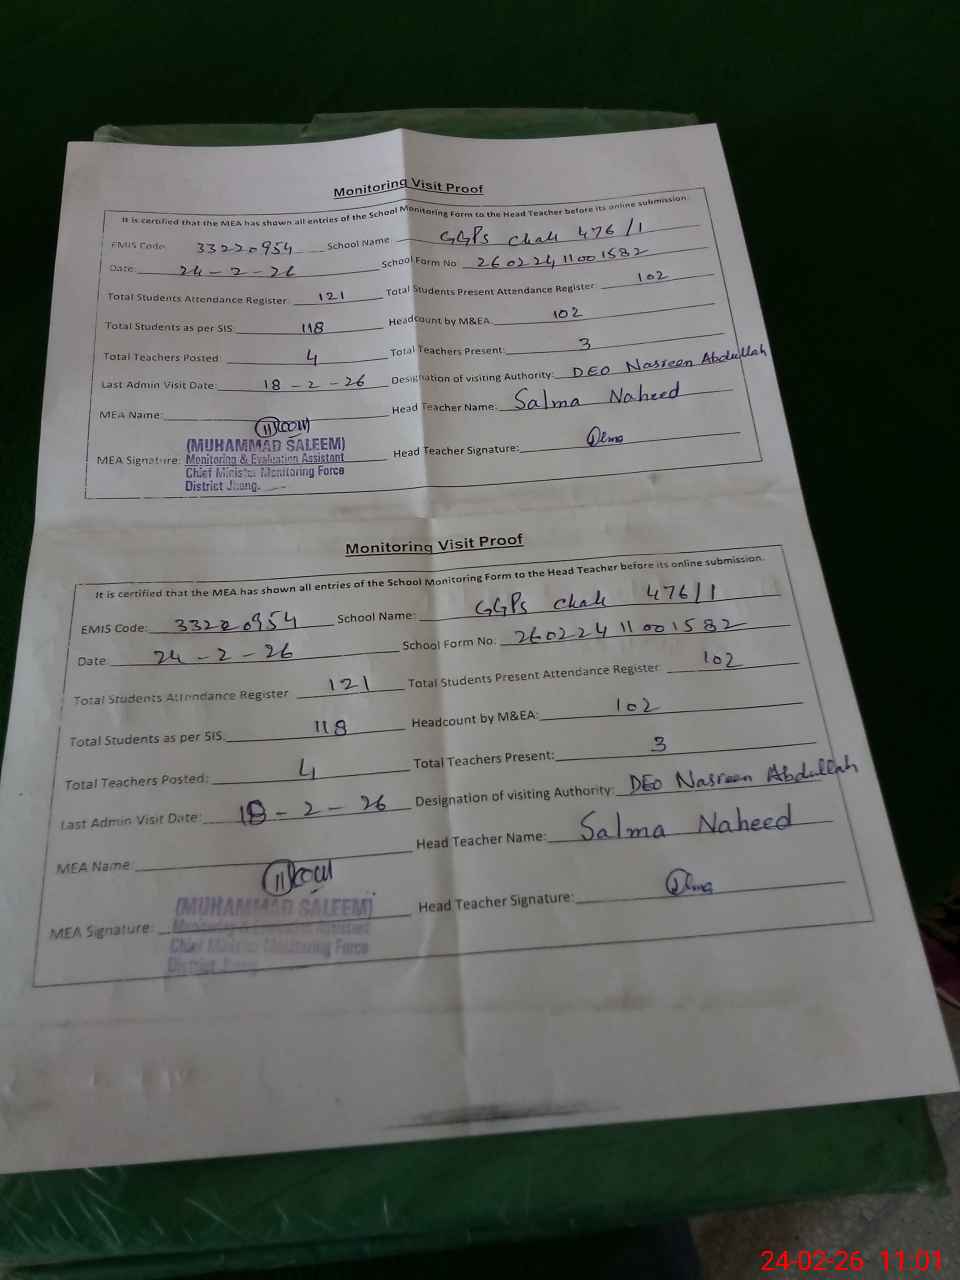 Monitoring Visit Proof
It is certified that the MEA has shown all entries of the School Monitoring Form to the Head Teacher before its online submission.
EMIS Code: 33220954 School Name: GGPS Chak 476/1
Date: 24-2-26 School Form No: 26022411001582
Total Students Attendance Register: 121 Total Students Present Attendance Register: 102
Total Students as per SIS: 118 Headcount by M&EA: 102
Total Teachers Posted: 4 Total Teachers Present: 3
Last Admin Visit Date: 18-2-26 Designation of visiting Authority: DEO Nasreen Abdullah
MEA Name: Head Teacher Name: Salma Naheed
MEA Signature: Head Teacher Signature:
(MUHAMMAD SALEEM)
Monitoring & Evaluation Assistant
Chief Minister Monitoring Force
District Jhang.
Monitoring Visit Proof
It is certified that the MEA has shown all entries of the School Monitoring Form to the Head Teacher before its online submission.
EMIS Code: 33220954 School Name: GGPS Chak 476/1
Date: 24-2-26 School Form No: 26022411001582
Total Students Attendance Register: 121 Total Students Present Attendance Register: 102
Total Students as per SIS: 118 Headcount by M&EA: 102
Total Teachers Posted: 4 Total Teachers Present: 3
Last Admin Visit Date: 18-2-26 Designation of visiting Authority: DEO Nasreen Abdullah
MEA Name: Head Teacher Name: Salma Naheed
MEA Signature: Head Teacher Signature:
(MUHAMMAD SALEEM)
Monitoring & Evaluation Assistant
Chief Minister Monitoring Force
District Jhang
24-02-26 11:01